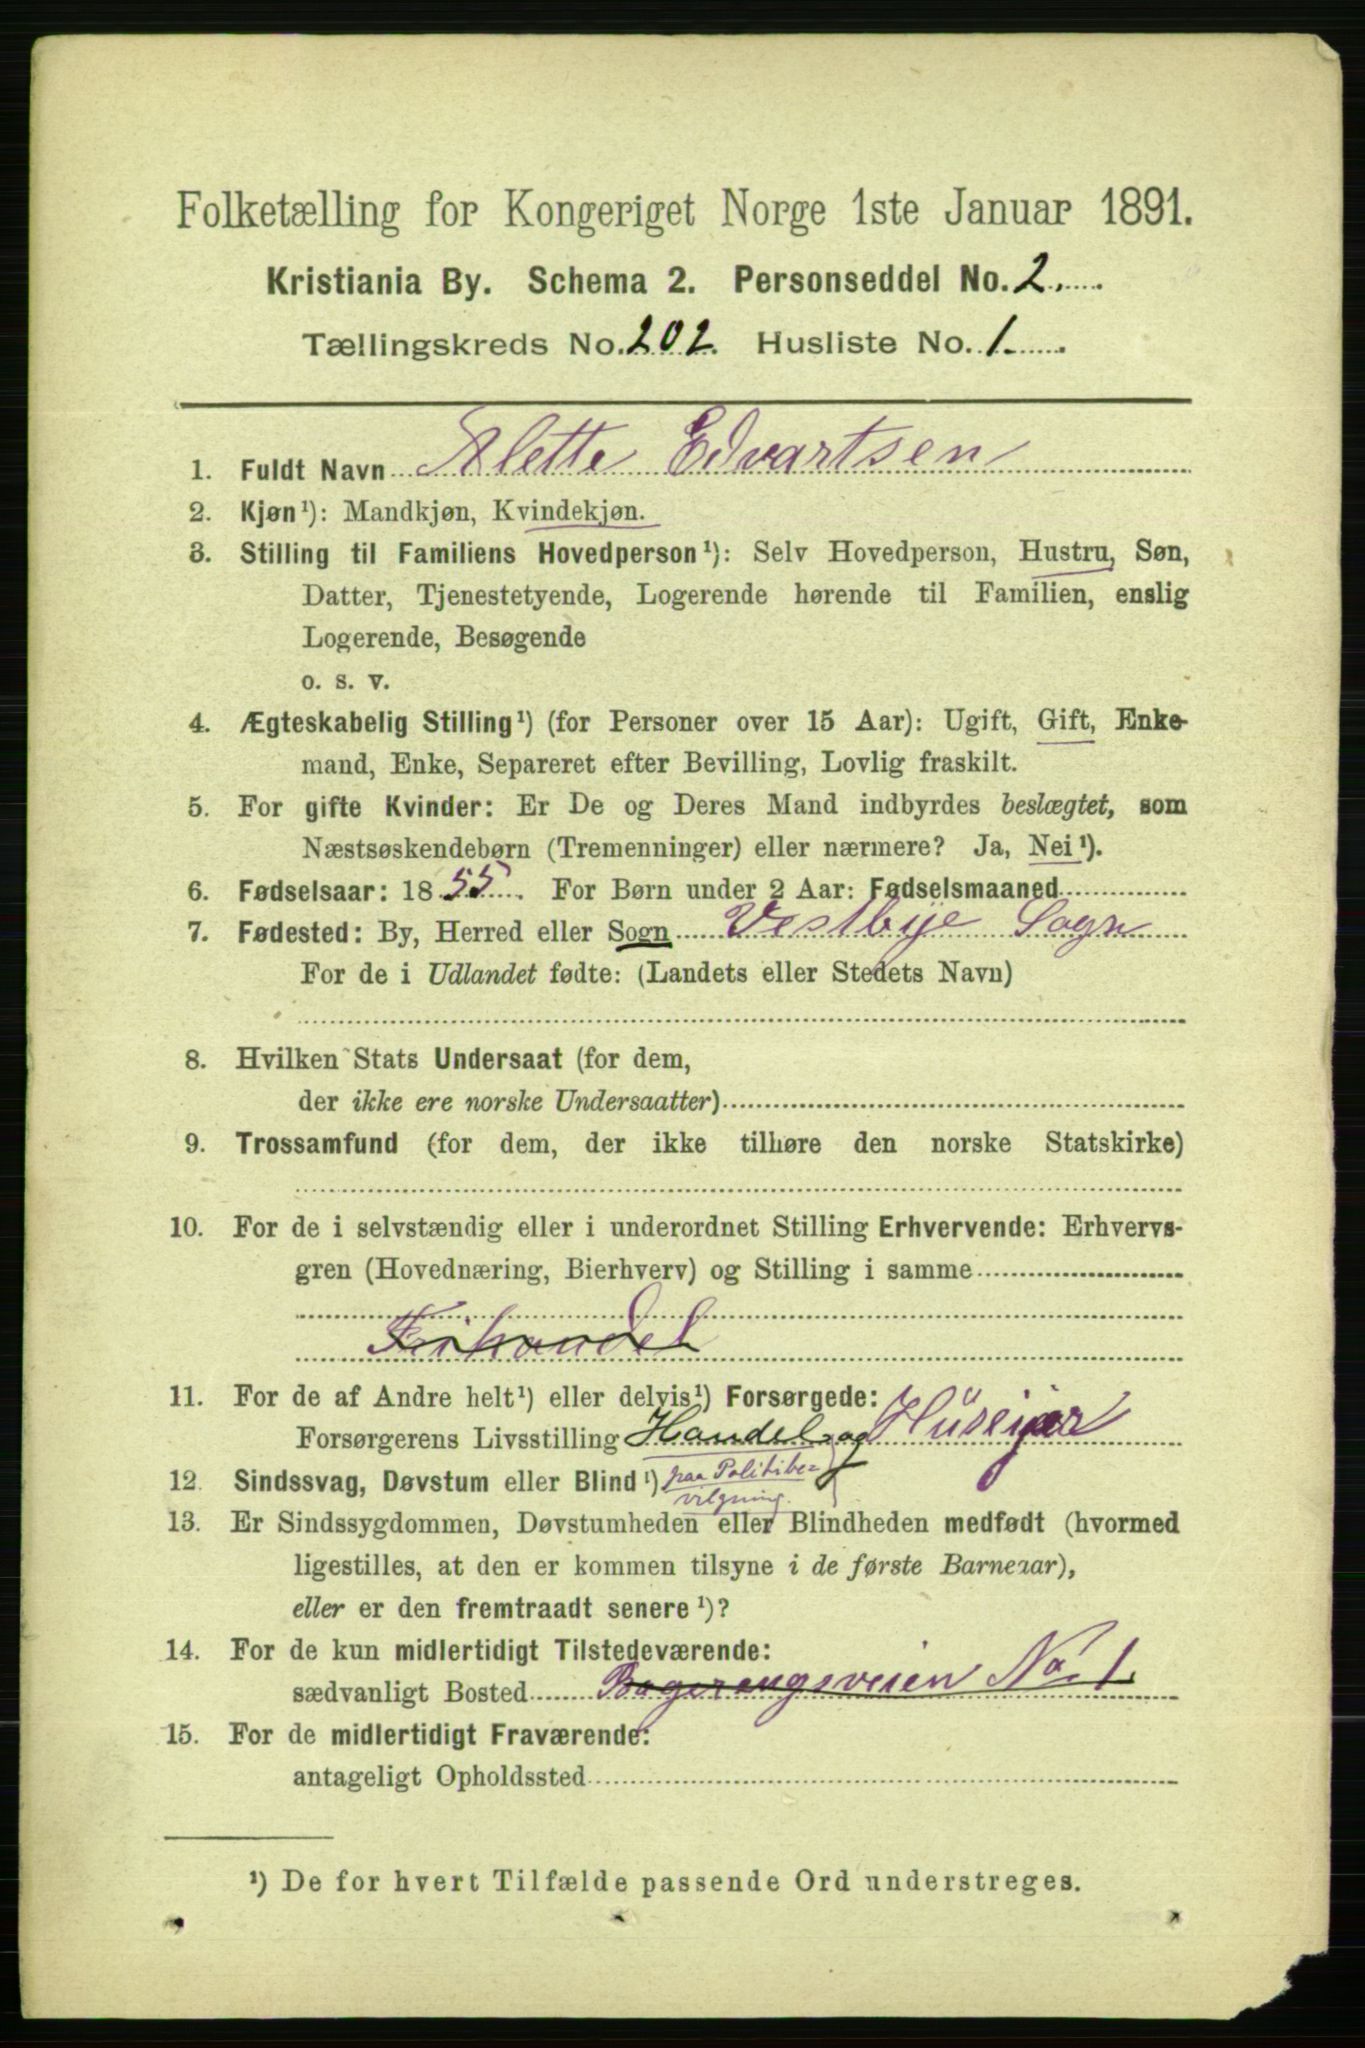 Folketælling for Kongeriget Norge 1ste Januar 1891.
Kristiania By. Schema 2. Personseddel No. 2.
Tællingskreds No. 202. Husliste No. 1.
1. Fuldt Navn Alette Edvartsen
2. Kjøn¹): Mandkjøn, Kvindekjøn.
3. Stilling til Familiens Hovedperson¹): Selv Hovedperson, Hustru, Søn,
Datter, Tjenestetyende, Logerende hørende til Familien, enslig
Logerende, Besøgende
o. s. v.
4. Ægteskabelig Stilling¹) (for Personer over 15 Aar): Ugift, Gift, Enke-
mand, Enke, Separeret efter Bevilling, Lovlig fraskilt.
5. For gifte Kvinder: Er De og Deres Mand indbyrdes beslægtet, som
Næstsøskendebørn (Tremenninger) eller nærmere? Ja, Nei¹).
6. Fødselsaar: 1855. For Børn under 2 Aar: Fødselsmaaned
7. Fødested: By, Herred eller Sogn Vestbye Sogn
For de i Udlandet fødte: (Landets eller Stedets Navn)
8. Hvilken Stats Undersaat (for dem,
der ikke ere norske Undersaatter)
9. Trossamfund (for dem, der ikke tilhøre den norske Statskirke)
10. For de i selvstændig eller i underordnet Stilling Erhvervende: Erhvervs-
gren (Hovednæring, Bierhverv) og Stilling i samme
Frihandel
11. For de af Andre helt¹) eller delvis¹) Forsørgede:
Forsørgerens Livsstilling Handel og Huseier
12. Sindssvag, Døvstum eller Blind¹) paa Politibe-
vilgning.
13. Er Sindssygdommen, Døvstumheden eller Blindheden medfødt (hvormed
ligestilles, at den er kommen tilsyne i de første Barneaar),
eller er den fremtraadt senere¹)?
14. For de kun midlertidigt Tilstedeværende:
sædvanligt Bosted Bagerengsveien No. 1
15. For de midlertidigt Fraværende:
antageligt Opholdssted
¹) De for hvert Tilfælde passende Ord understreges.